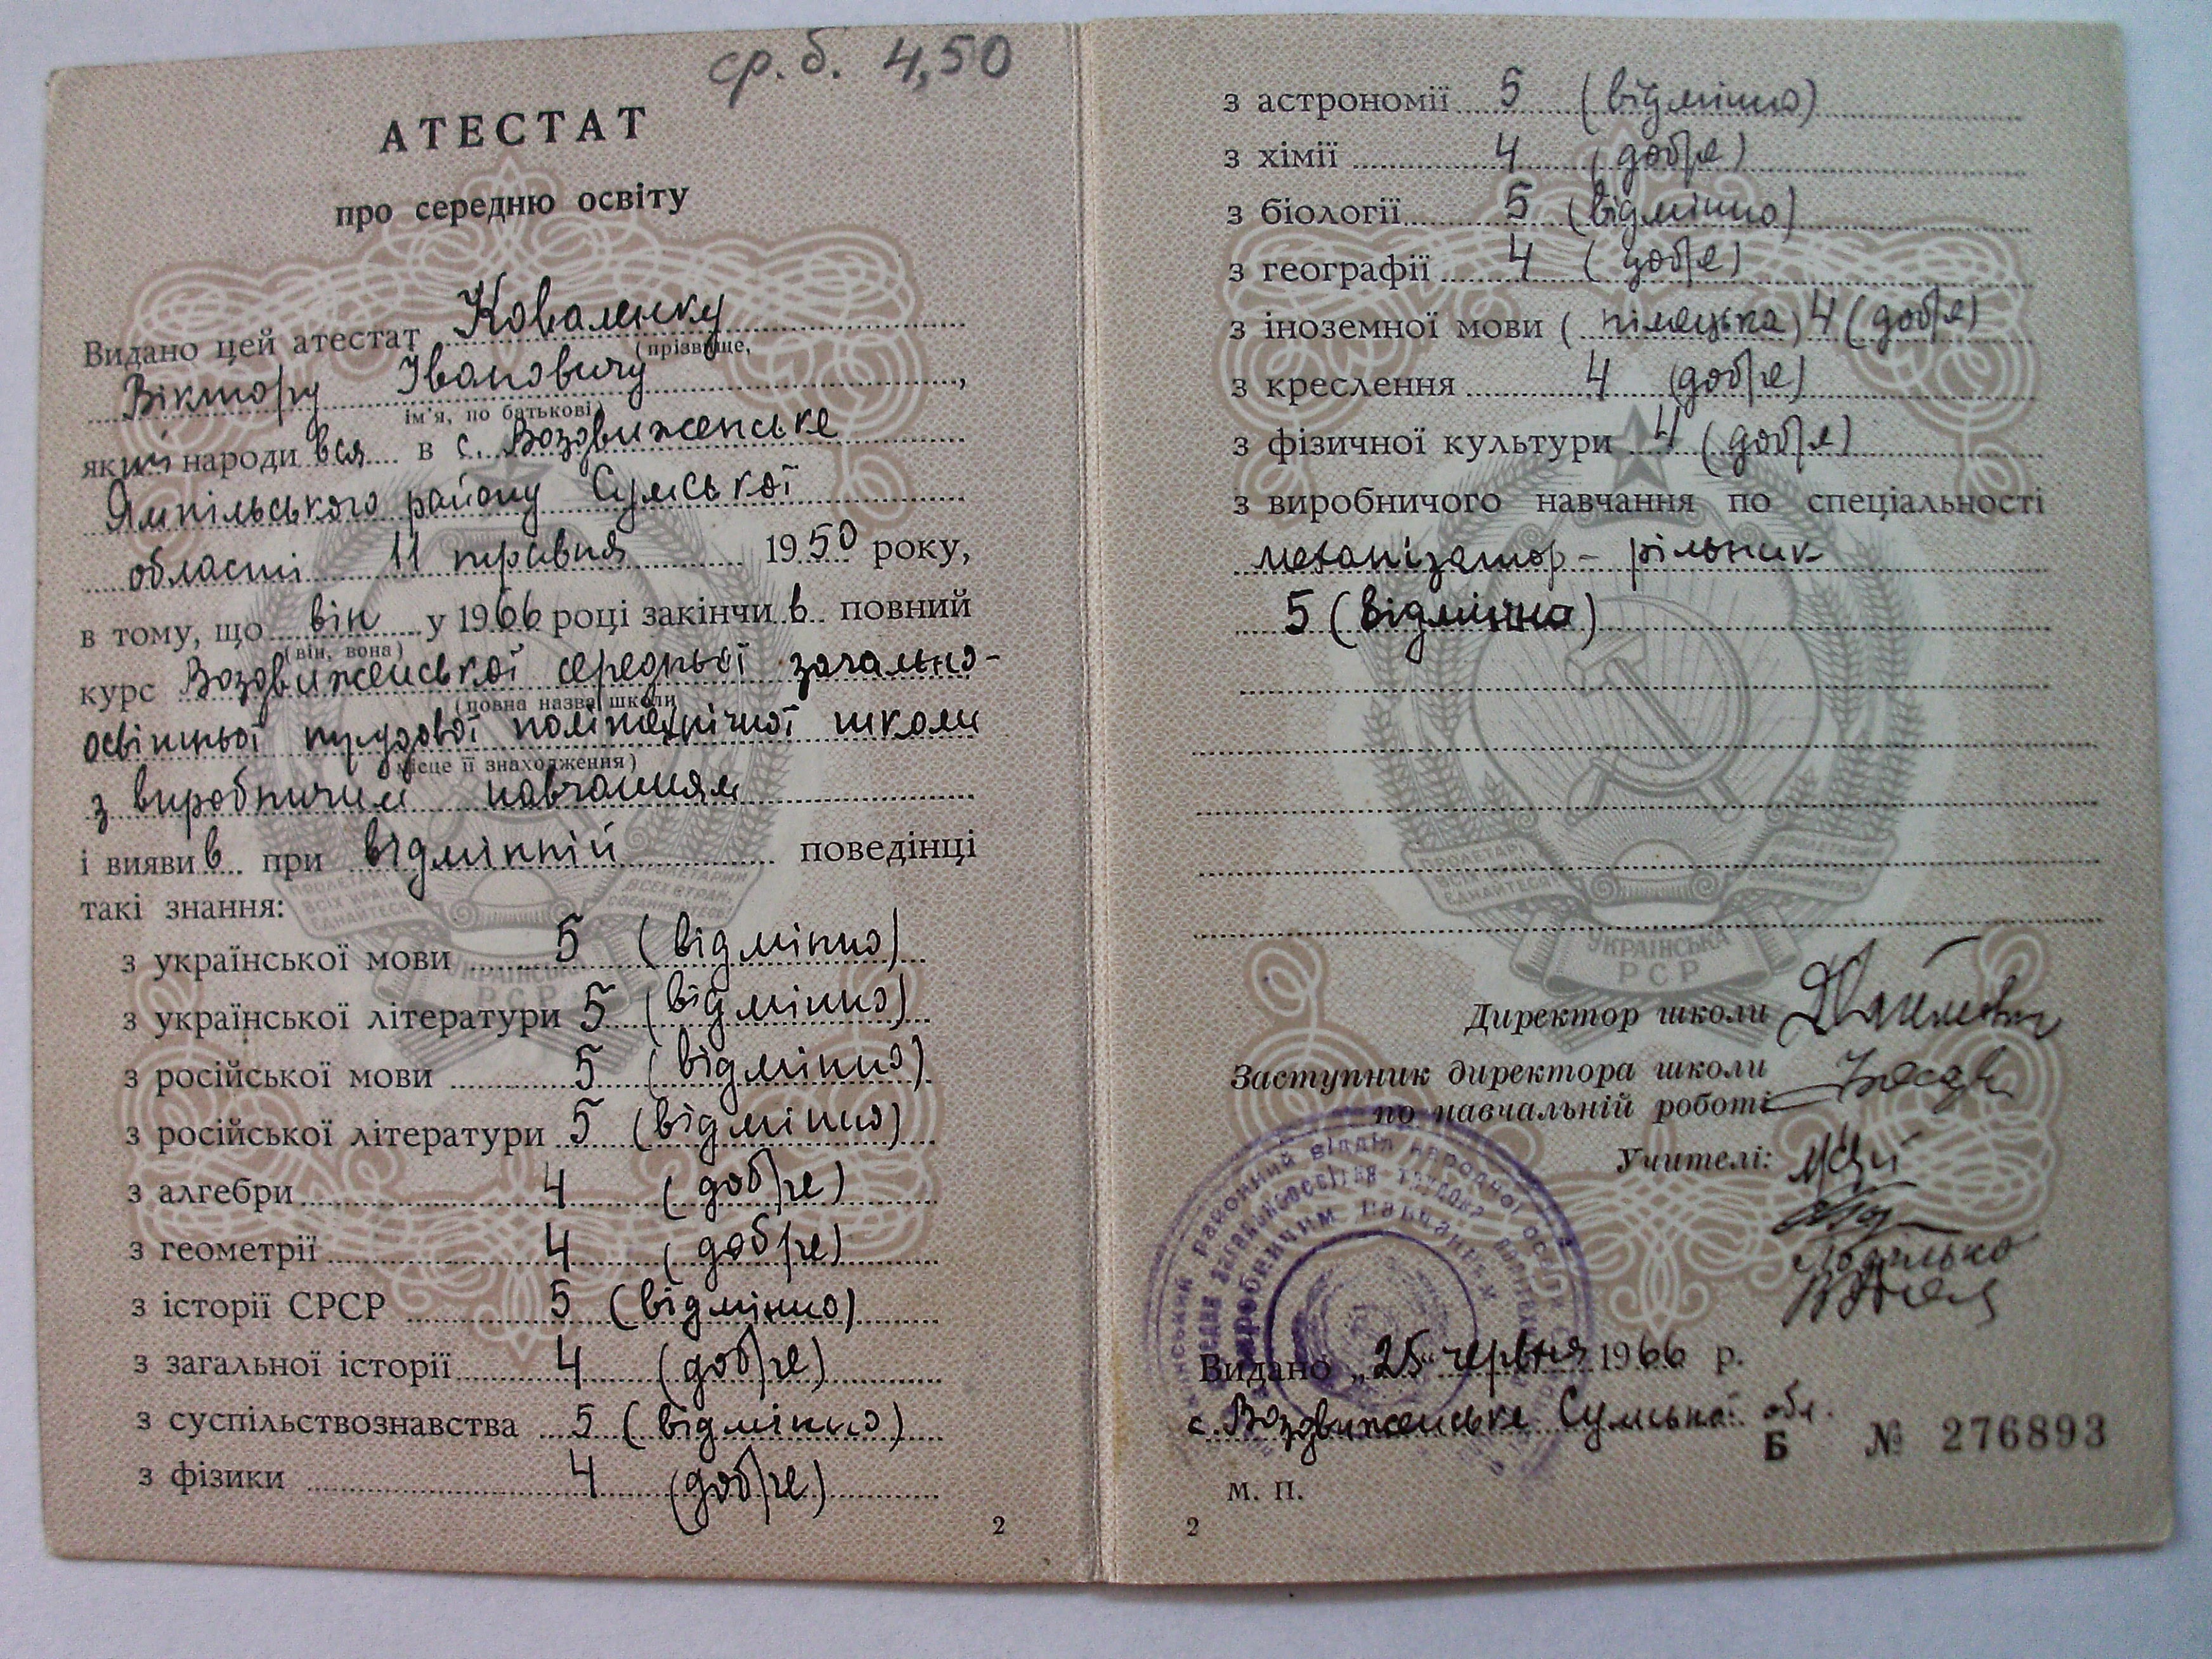 ср. б. 4,50
АТЕСТАТ
про середню освіту
Видано цей атестат Коваленку
(прізвище,
Віктору Івановичу,
ім'я, по батькові)
який народився в с. Воздвиженське
Ямпільського району Сумської
області 11 травня 1950 року,
в тому, що він у 1966 році закінчив повний
(він, вона)
курс Воздвиженської середньої загально-
(повна назва школи
освітньої трудової політехнічної школи
місце її знаходження)
з виробничим навчанням
і виявив при відмінній поведінці
такі знання:
з української мови 5 (відмінно)
з української літератури 5 (відмінно)
з російської мови 5 (відмінно)
з російської літератури 5 (відмінно)
з алгебри 4 (добре)
з геометрії 4 (добре)
з історії СРСР 5 (відмінно)
з загальної історії 4 (добре)
з суспільствознавства 5 (відмінно)
з фізики 4 (добре)
2
з астрономії 5 (відмінно)
з хімії 4 (добре)
з біології 5 (відмінно)
з географії 4 (добре)
з іноземної мови (німецька) 4 (добре)
з креслення 4 (добре)
з фізичної культури 4 (добре)
з виробничого навчання по спеціальності
механізатор - рільник
5 (відмінно)
УКРАЇНСЬКА
РСР
Директор школи
Заступник директора школи
по навчальній роботі
Учителі:
районний відділ народної освіти
виробничим навчанням
Видано „25" червня 1966 р.
с. Воздвиженське Сумська обл.
Б № 276893
М. П.
2